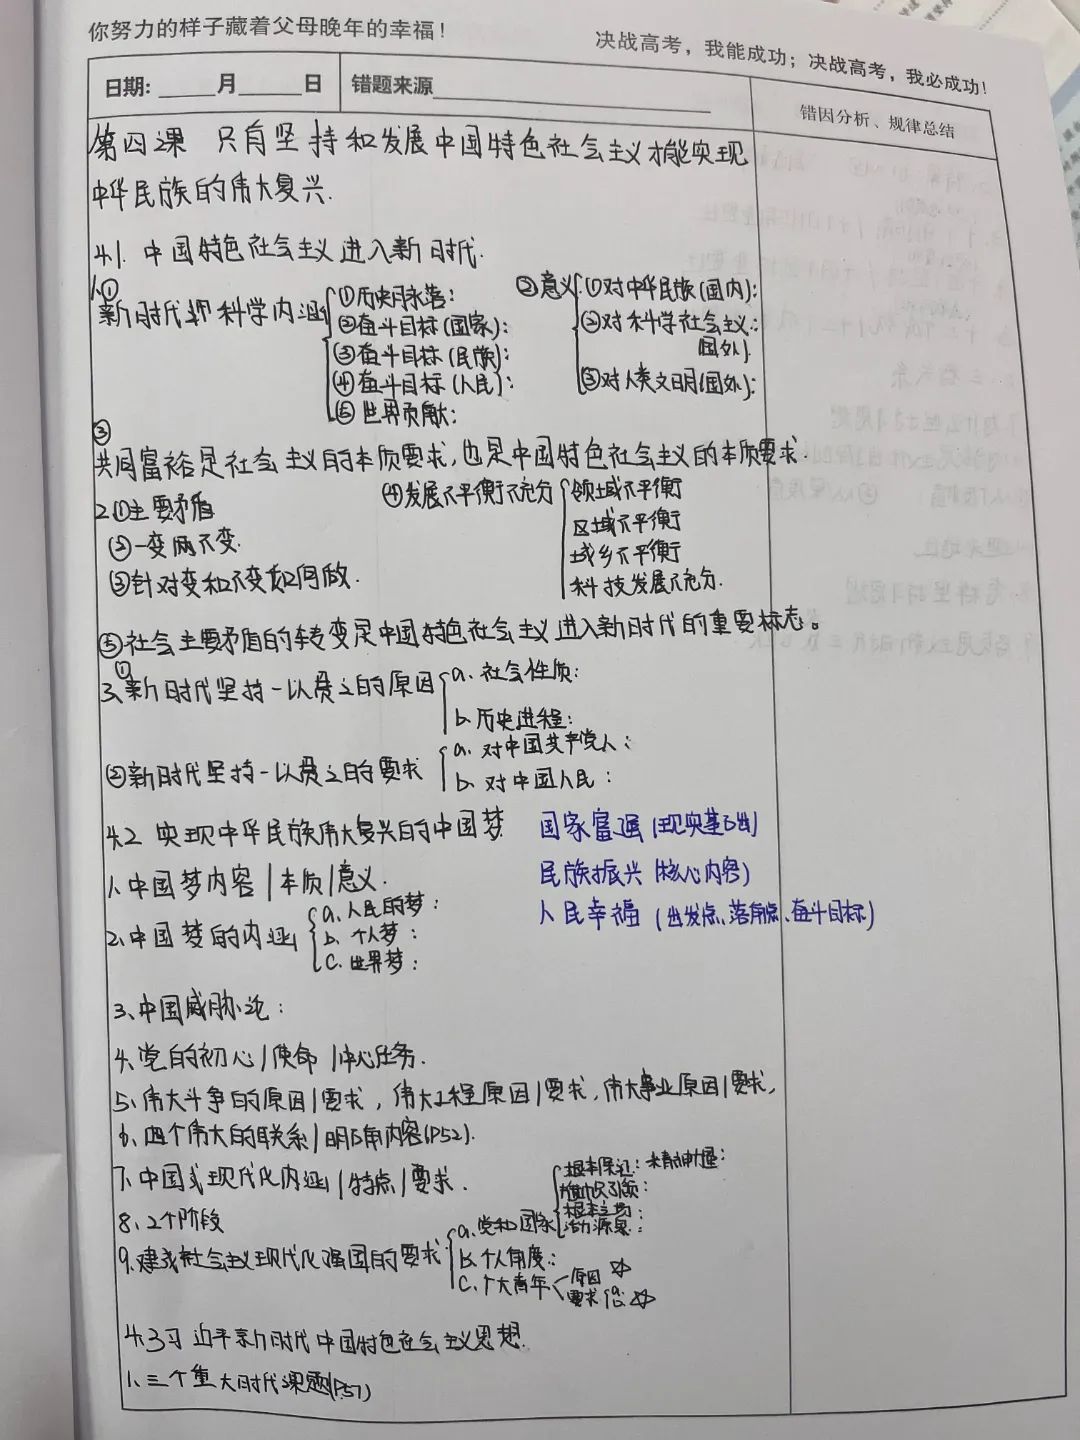 你努力的样子藏着父母晚年的幸福！
决战高考，我能成功；决战高考，我必成功！
日期：____月____日 错题来源
错因分析、规律总结
第四课 只有坚持和发展中国特色社会主义才能实现
中华民族的伟大复兴.
4.1 中国特色社会主义进入新时代.
1.①
新时代的科学内涵
①历史方位:
②奋斗目标(国家):
③奋斗目标(民族):
④奋斗目标(人民):
⑤世界贡献:
②意义
①对中华民族(国内):
②对科学社会主义:
国外)
③对人类文明(国外):
③
共同富裕是社会主义的本质要求,也是中国特色社会主义的本质要求.
2.①主要矛盾
②一变两不变.
③针对变和不变如何做.
④发展不平衡不充分
领域不平衡
区域不平衡
城乡不平衡
科技发展不充分.
⑤社会主要矛盾的转变是中国特色社会主义进入新时代的重要标志。
①
3、新时代坚持一以贯之的原因
a. 社会性质:
b. 历史进程:
②新时代坚持一以贯之的要求
a. 对中国共产党人:
b. 对中国人民:
4.2 实现中华民族伟大复兴的中国梦
国家富强(现实基础)
民族振兴(核心内容)
人民幸福(出发点、落脚点、奋斗目标)
1.中国梦内容|本质|意义.
2、中国梦的内涵
a.人民的梦:
b. 个人梦:
C. 世界梦:
3、中国威胁论:
4.党的初心|使命|中心任务.
5、伟大斗争的原因|要求,伟大工程原因|要求,伟大事业原因|要求,
6、四个伟大的联系|明确内容(P52).
7、中国式现代化内涵|特点|要求.
8、2个阶段
9、建成社会主义现代化强国的要求
a.党和国家
根本保证: 精神力量:
旗帜引领:
根本立场:
动力源泉:
b.个人角度:
C.个大青年
原因
要求
4.3习近平新时代中国特色社会主义思想.
1、三个重大时代课题(P57)